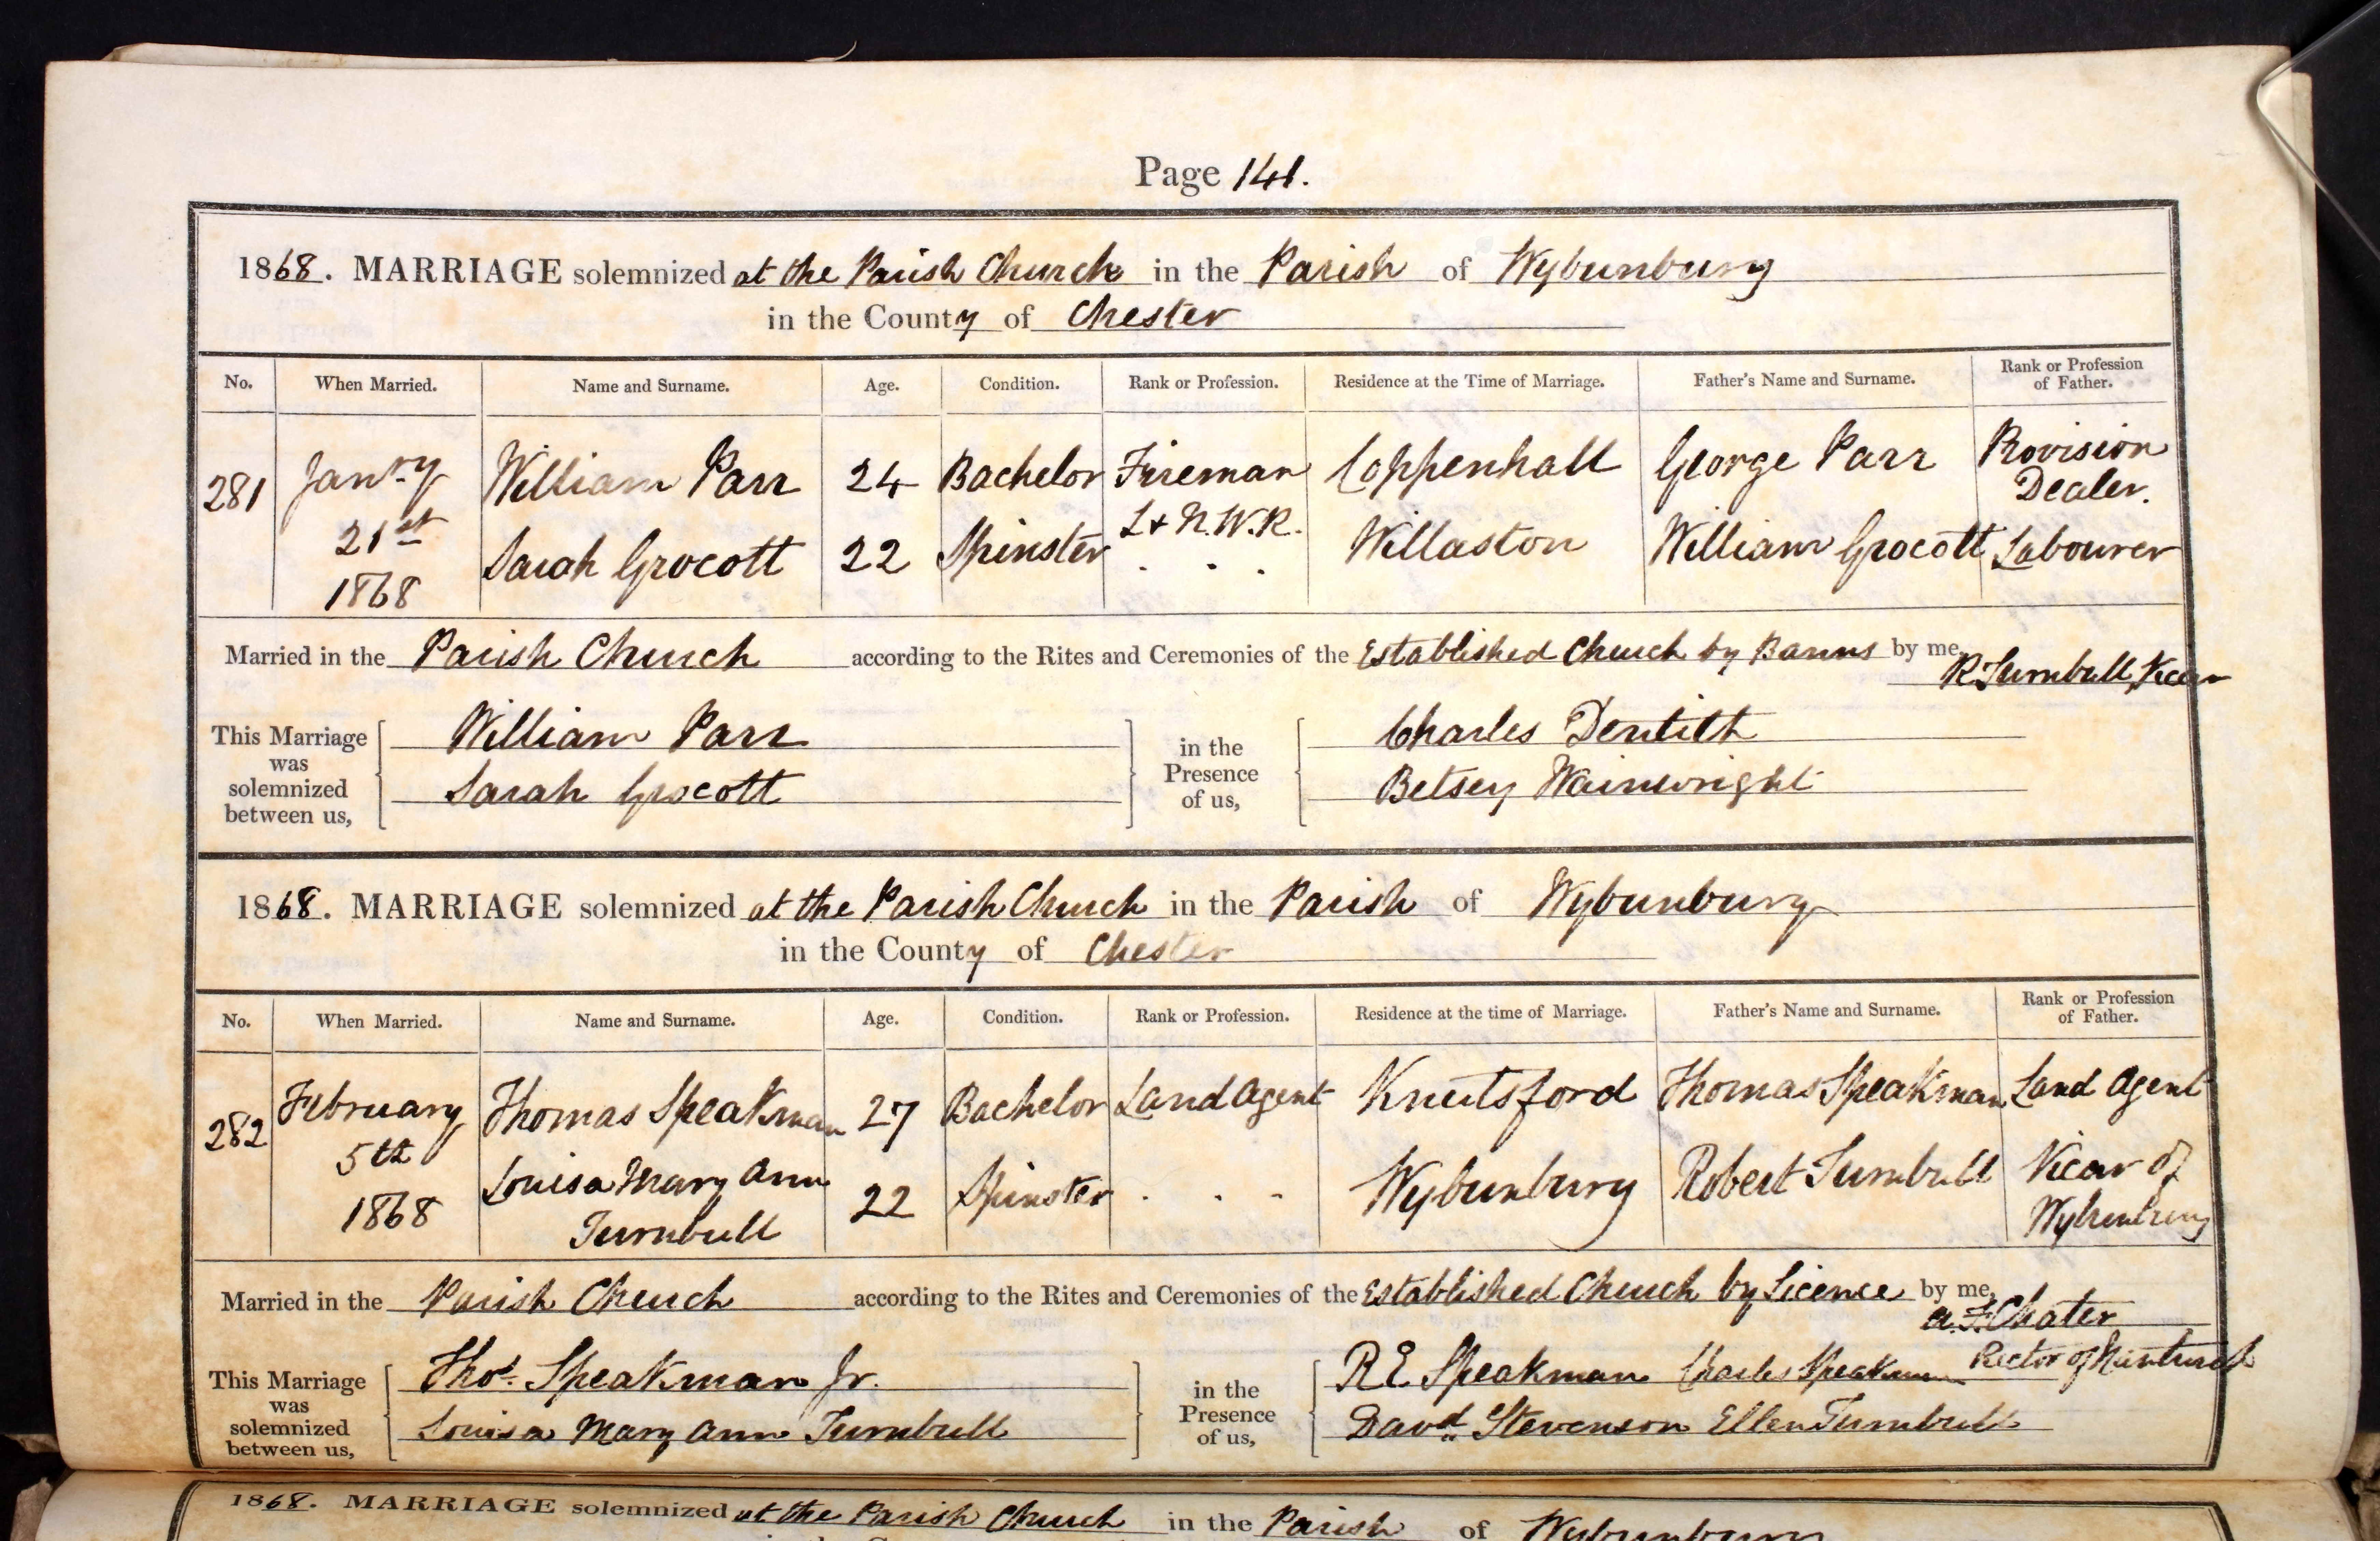 Page 141.
1868. MARRIAGE solemnized at the Parish Church in the Parish of Wybunbury
in the County of Chester
No. When Married. Name and Surname. Age. Condition. Rank or Profession. Residence at the Time of Marriage. Father's Name and Surname. Rank or Profession of Father.
281 Janry 21st 1868 William Parr 24 Bachelor Fireman L & N.W.R. Coppenhall George Parr Provision Dealer.
Sarah Grocott 22 Spinster . . . Willaston William Grocott Labourer
Married in the Parish Church according to the Rites and Ceremonies of the Established Church by Banns by me,
R Turnbull, Vicar
This Marriage was solemnized between us, William Parr in the Presence of us, Charles Dentith
Sarah Grocott Betsey Wainwright
1868. MARRIAGE solemnized at the Parish Church in the Parish of Wybunbury
in the County of Chester
No. When Married. Name and Surname. Age. Condition. Rank or Profession. Residence at the time of Marriage. Father's Name and Surname. Rank or Profession of Father.
282 February 5th 1868 Thomas Speakman 27 Bachelor Land Agent Knutsford Thomas Speakman Land Agent
Louisa Mary Ann Turnbull 22 Spinster . . - Wybunbury Robert Turnbull Vicar of Wybunbury
Married in the Parish Church according to the Rites and Ceremonies of the Established Church by Licence by me,
A. F. Chater
Rector of
This Marriage was solemnized between us, Thos. Speakman Jr. in the Presence of us, R E Speakman Charles Speakman
Louisa Mary Ann Turnbull Davd. Stevenson Ellen Turnbull
1868. MARRIAGE solemnized at the Parish Church in the Parish of Wybunbury